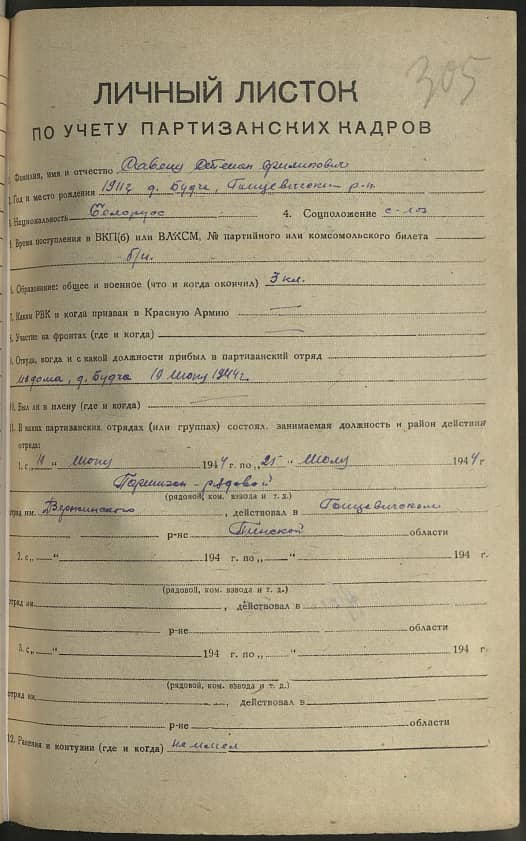 305
ЛИЧНЫЙ ЛИСТОК
ПО УЧЕТУ ПАРТИЗАНСКИХ КАДРОВ
1. Фамилия, имя и отчество Филипович
2. Год и место рождения д. Будча, Ганцевичский р-н.
3. Национальность Белорус 4. Соцположение
5. Время поступления в ВКП(б) или ВЛКСМ, № партийного или комсомольского билета
б/п.
6. Образование: общее и военное (что и когда окончил) 3 кл.
7. Каким РВК и когда призван в Красную Армию —
8. Участие на фронтах (где и когда) —
9. Откуда, когда и с какой должности прибыл в партизанский отряд
из дома, д. Будча 10 1944г.
10. Был ли в плену (где и когда) —
11. В каких партизанских отрядах (или группах) состоял, занимаемая должность и район действий
отряда:
1. с „10 “ 1944 г. по „25 “ 1944 г
Партизан - рядовой
(рядовой, ком. взвода и т. д.)
отряд им. Дзержинского , действовал в Ганцевичском
р-не Пинской области
2. с „ “ 194 г. по „ “ 194 г.
(рядовой, ком. взвода и т. д.)
отряд им. , действовал в
р-не области
3. с „ “ 194 г. по „ “ 194 г.
(рядовой, ком. взвода и т. д.)
отряд им. , действовал в
р-не области
12. Ранения и контузии (где и когда) не имел